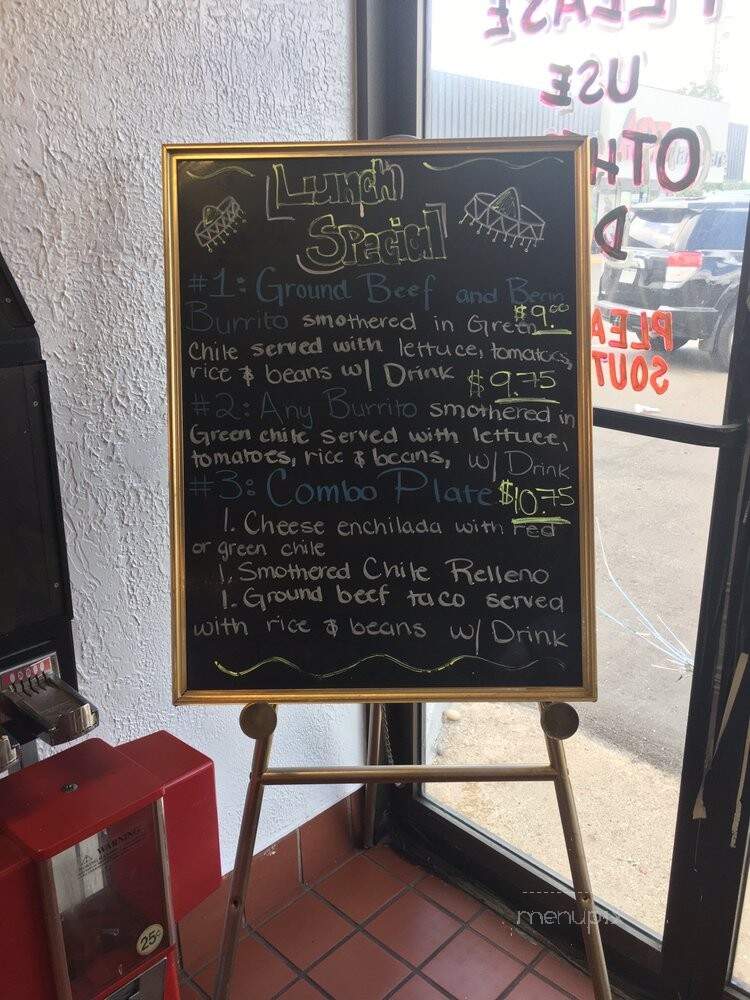 Lunch
Special
#1: Ground Beef and Bean
Burrito smothered in Green $9.00
Chile served with lettuce, tomatoes,
rice & beans w/ Drink $9.75
#2: Any Burrito smothered in
Green chile served with lettuce,
tomatoes, rice & beans, w/ Drink
#3: Combo Plate $10.75
1. Cheese enchilada with red
or green chile
1. Smothered Chile Relleno
1. Ground beef taco served
with rice & beans w/ Drink
PLEASE
USE
OTH
D
PLEA
SOUT
WARNING
25¢
menupix